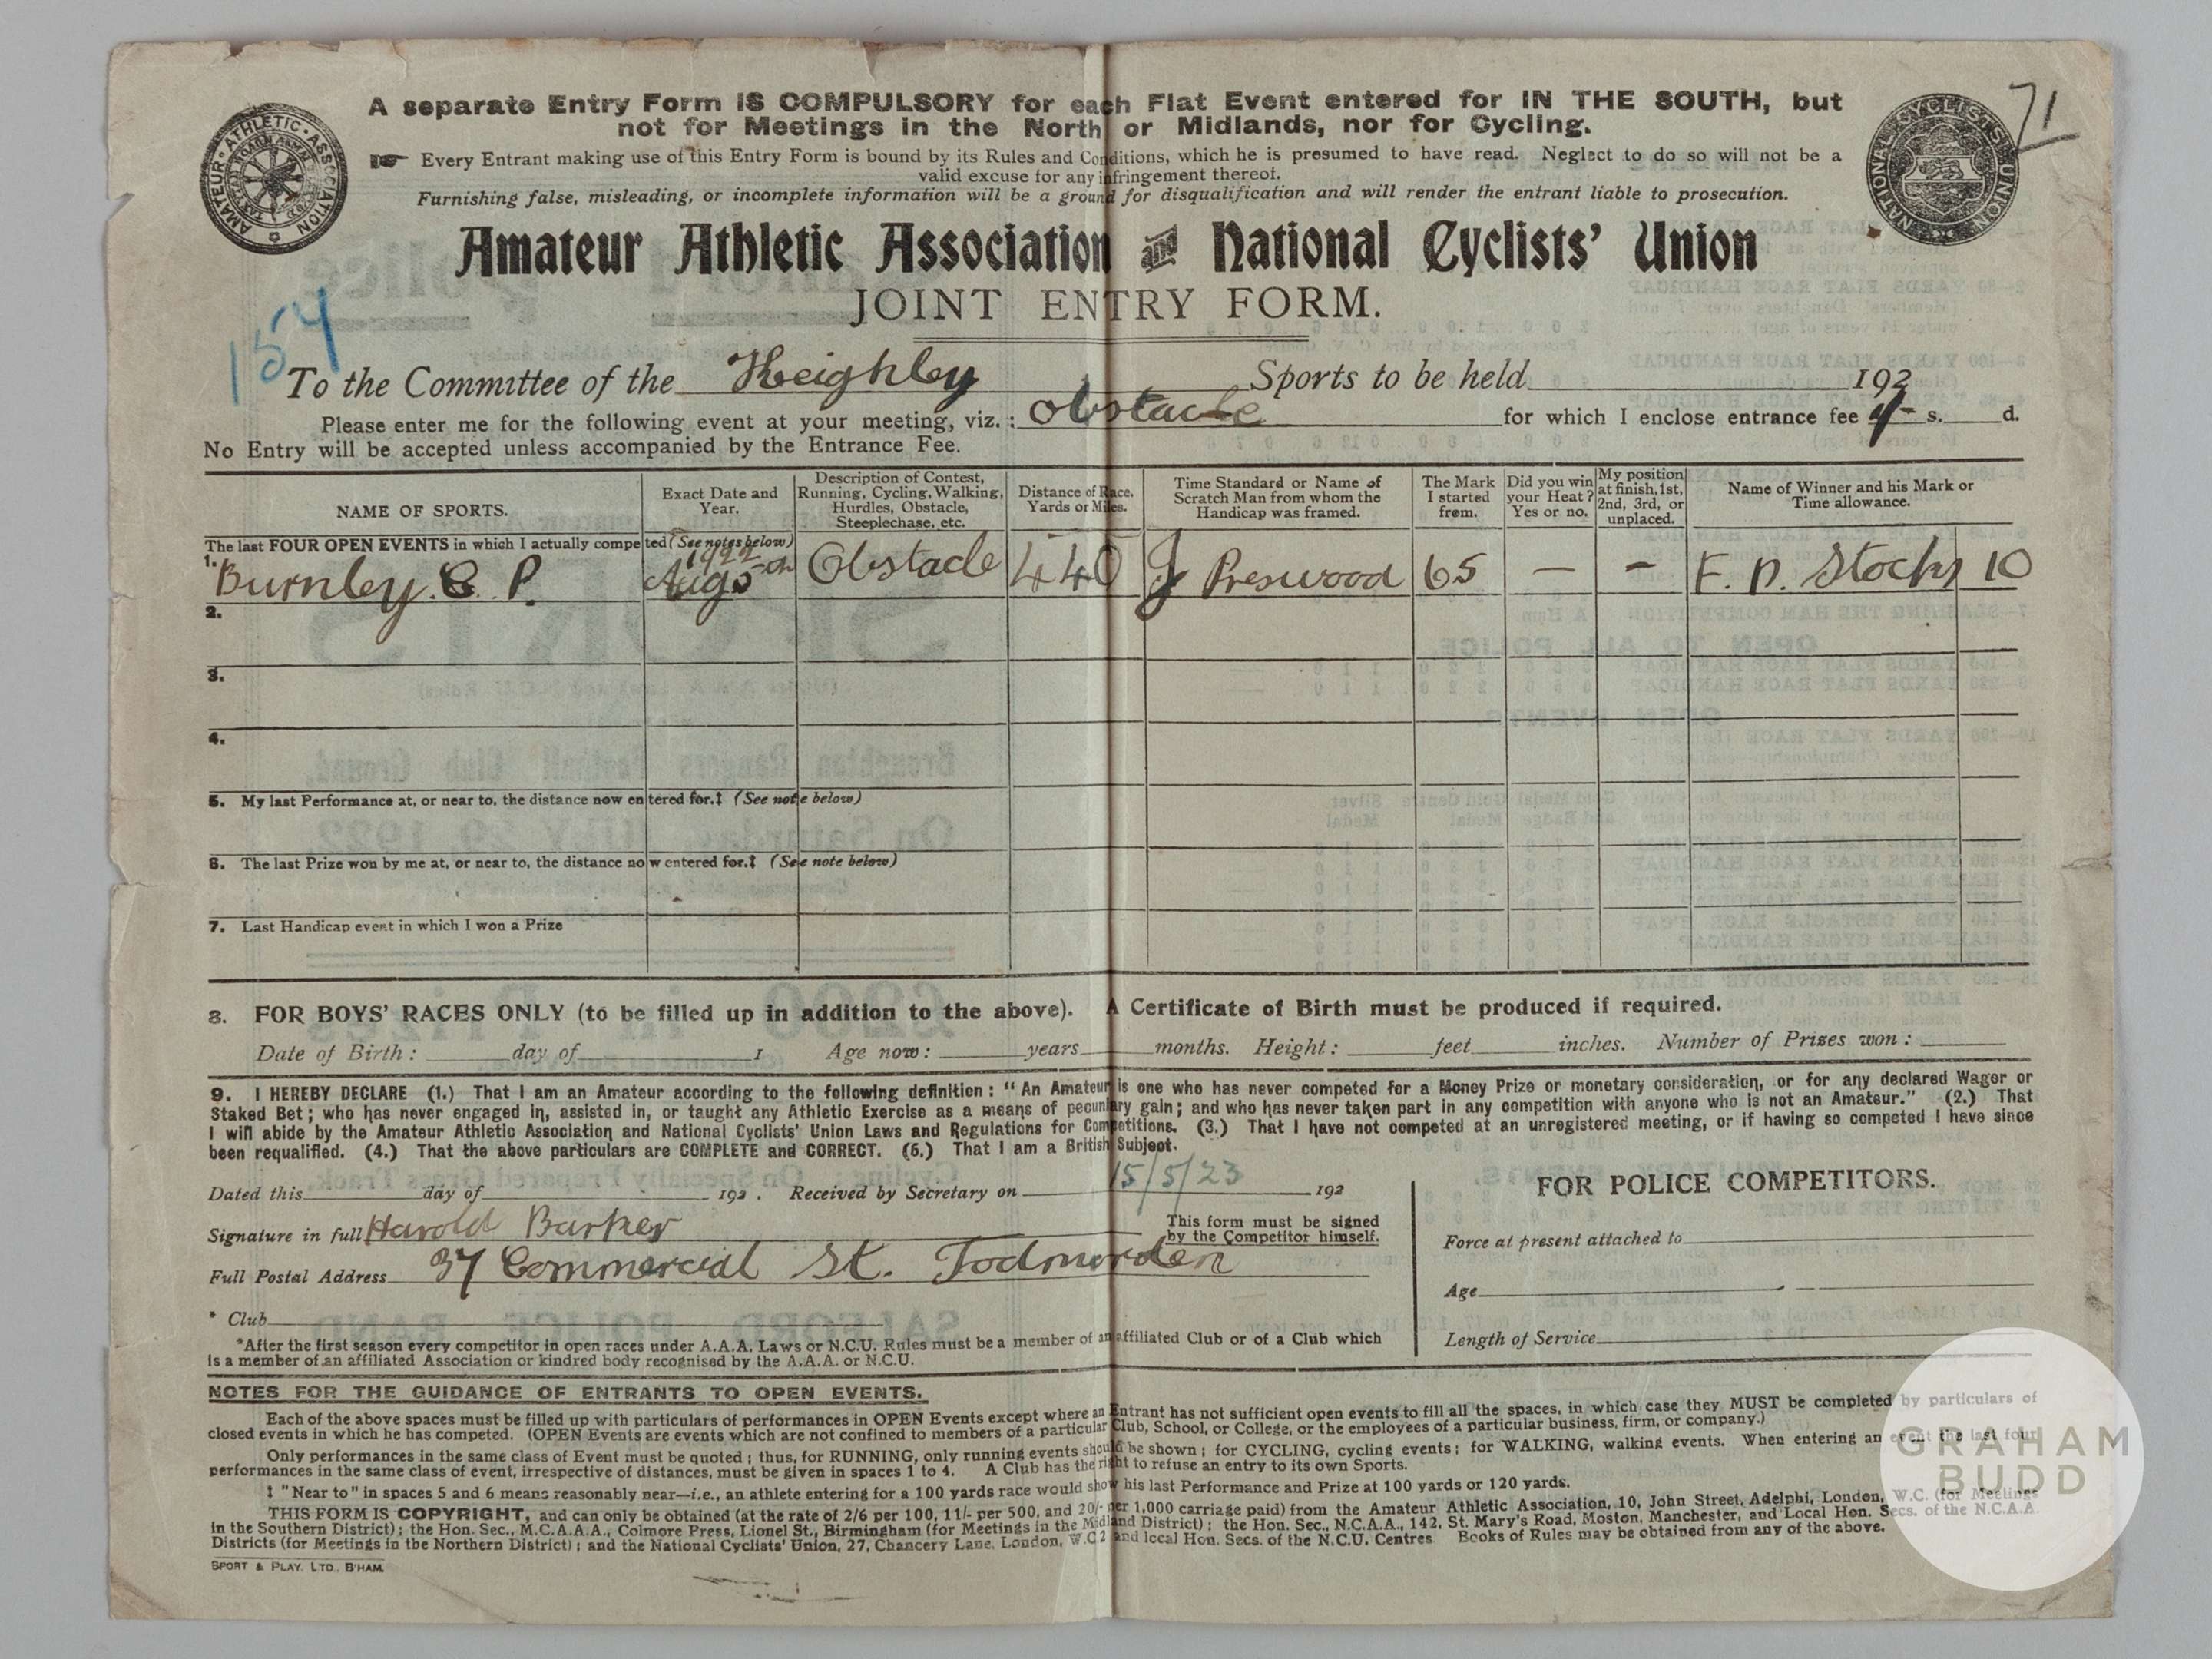 A separate Entry Form IS COMPULSORY for each Flat Event entered for IN THE SOUTH, but
not for Meetings in the North or Midlands, nor for Cycling.
71
AMATEUR · ATHLETIC · ASSOCIATION
NATIONAL CYCLISTS' UNION
Every Entrant making use of this Entry Form is bound by its Rules and Conditions, which he is presumed to have read. Neglect to do so will not be a
valid excuse for any infringement thereof.
Furnishing false, misleading, or incomplete information will be a ground for disqualification and will render the entrant liable to prosecution.
Amateur Athletic Association and National Cyclists' Union
JOINT ENTRY FORM.
154
To the Committee of the Keighley Sports to be held 192
Please enter me for the following event at your meeting, viz.: Obstacle for which I enclose entrance fee s. d.
No Entry will be accepted unless accompanied by the Entrance Fee.
NAME OF SPORTS. Exact Date and Year. Description of Contest, Running, Cycling, Walking, Hurdles, Obstacle, Steeplechase, etc. Distance of Race. Yards or Miles. Time Standard or Name of Scratch Man from whom the Handicap was framed. The Mark I started from. Did you win your Heat? Yes or no. My position at finish, 1st, 2nd, 3rd, or unplaced. Name of Winner and his Mark or Time allowance.
The last FOUR OPEN EVENTS in which I actually competed (See notes below)
1. Burnley C. P. 1922 Aug 5th Obstacle 440 J Preswood 65 — - F. N. Stocks 10
2.
3.
4.
5. My last Performance at, or near to, the distance now entered for.‡ (See note below)
6. The last Prize won by me at, or near to, the distance now entered for.‡ (See note below)
7. Last Handicap event in which I won a Prize
8. FOR BOYS' RACES ONLY (to be filled up in addition to the above). A Certificate of Birth must be produced if required.
Date of Birth: day of 1 Age now: years months. Height: feet inches. Number of Prizes won:
9. I HEREBY DECLARE (1.) That I am an Amateur according to the following definition: "An Amateur is one who has never competed for a Money Prize or monetary consideration, or for any declared Wager or
Staked Bet; who has never engaged in, assisted in, or taught any Athletic Exercise as a means of pecuniary gain; and who has never taken part in any competition with anyone who is not an Amateur." (2.) That
I will abide by the Amateur Athletic Association and National Cyclists' Union Laws and Regulations for Competitions. (3.) That I have not competed at an unregistered meeting, or if having so competed I have since
been requalified. (4.) That the above particulars are COMPLETE and CORRECT. (5.) That I am a British Subject.
Dated this day of 192 . Received by Secretary on 15/5/23 192
Signature in full Harold Barker
This form must be signed
by the Competitor himself.
Full Postal Address 37 Commercial St. Todmorden
* Club
*After the first season every competitor in open races under A.A.A. Laws or N.C.U. Rules must be a member of an affiliated Club or of a Club which
is a member of an affiliated Association or kindred body recognised by the A.A.A. or N.C.U.
FOR POLICE COMPETITORS.
Force at present attached to
Age
Length of Service
NOTES FOR THE GUIDANCE OF ENTRANTS TO OPEN EVENTS.
Each of the above spaces must be filled up with particulars of performances in OPEN Events except where an Entrant has not sufficient open events to fill all the spaces, in which case they MUST be completed by particulars of
closed events in which he has competed. (OPEN Events are events which are not confined to members of a particular Club, School, or College, or the employees of a particular business, firm, or company.)
Only performances in the same class of Event must be quoted; thus, for RUNNING, only running events should be shown; for CYCLING, cycling events; for WALKING, walking events. When entering an event the last four
performances in the same class of event, irrespective of distances, must be given in spaces 1 to 4. A Club has the right to refuse an entry to its own Sports.
‡ "Near to" in spaces 5 and 6 means reasonably near—i.e., an athlete entering for a 100 yards race would show his last Performance and Prize at 100 yards or 120 yards.
THIS FORM IS COPYRIGHT, and can only be obtained (at the rate of 2/6 per 100, 11/- per 500, and 20/- per 1,000 carriage paid) from the Amateur Athletic Association, 10, John Street, Adelphi, London, W.C. (for Meetings
in the Southern District); the Hon. Sec., M.C.A.A.A., Colmore Press, Lionel St., Birmingham (for Meetings in the Midland District); the Hon. Sec., N.C.A.A., 142, St. Mary's Road, Moston, Manchester, and Local Hon. Secs. of the N.C.A.A.
Districts (for Meetings in the Northern District); and the National Cyclists' Union, 27, Chancery Lane, London, W.C.2 and local Hon. Secs. of the N.C.U. Centres Books of Rules may be obtained from any of the above.
SPORT & PLAY, LTD., B'HAM.
GRAHAM
BUDD